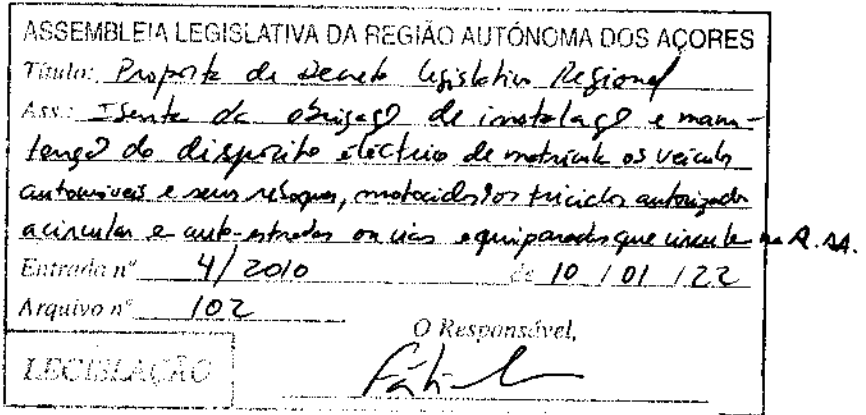 ASSEMBLEIA LEGISLATIVA DA REGIÃO AUTÓNOMA DOS AÇORES
Título: Proposta de Decreto Legislativo Regional
Ass.: Isenta da obrigação de instalação e manu-
tenção do dispositivo eléctrico de matrícula os veículos
automóveis e seus reboques, motociclos e os triciclos autorizados
a circular e auto-estradas ou vias equiparadas que circulem na R.A.A.
Entrada nº 4/2010 de 10 / 01 / 22
Arquivo nº 102
O Responsável,
LEGISLAÇÃO